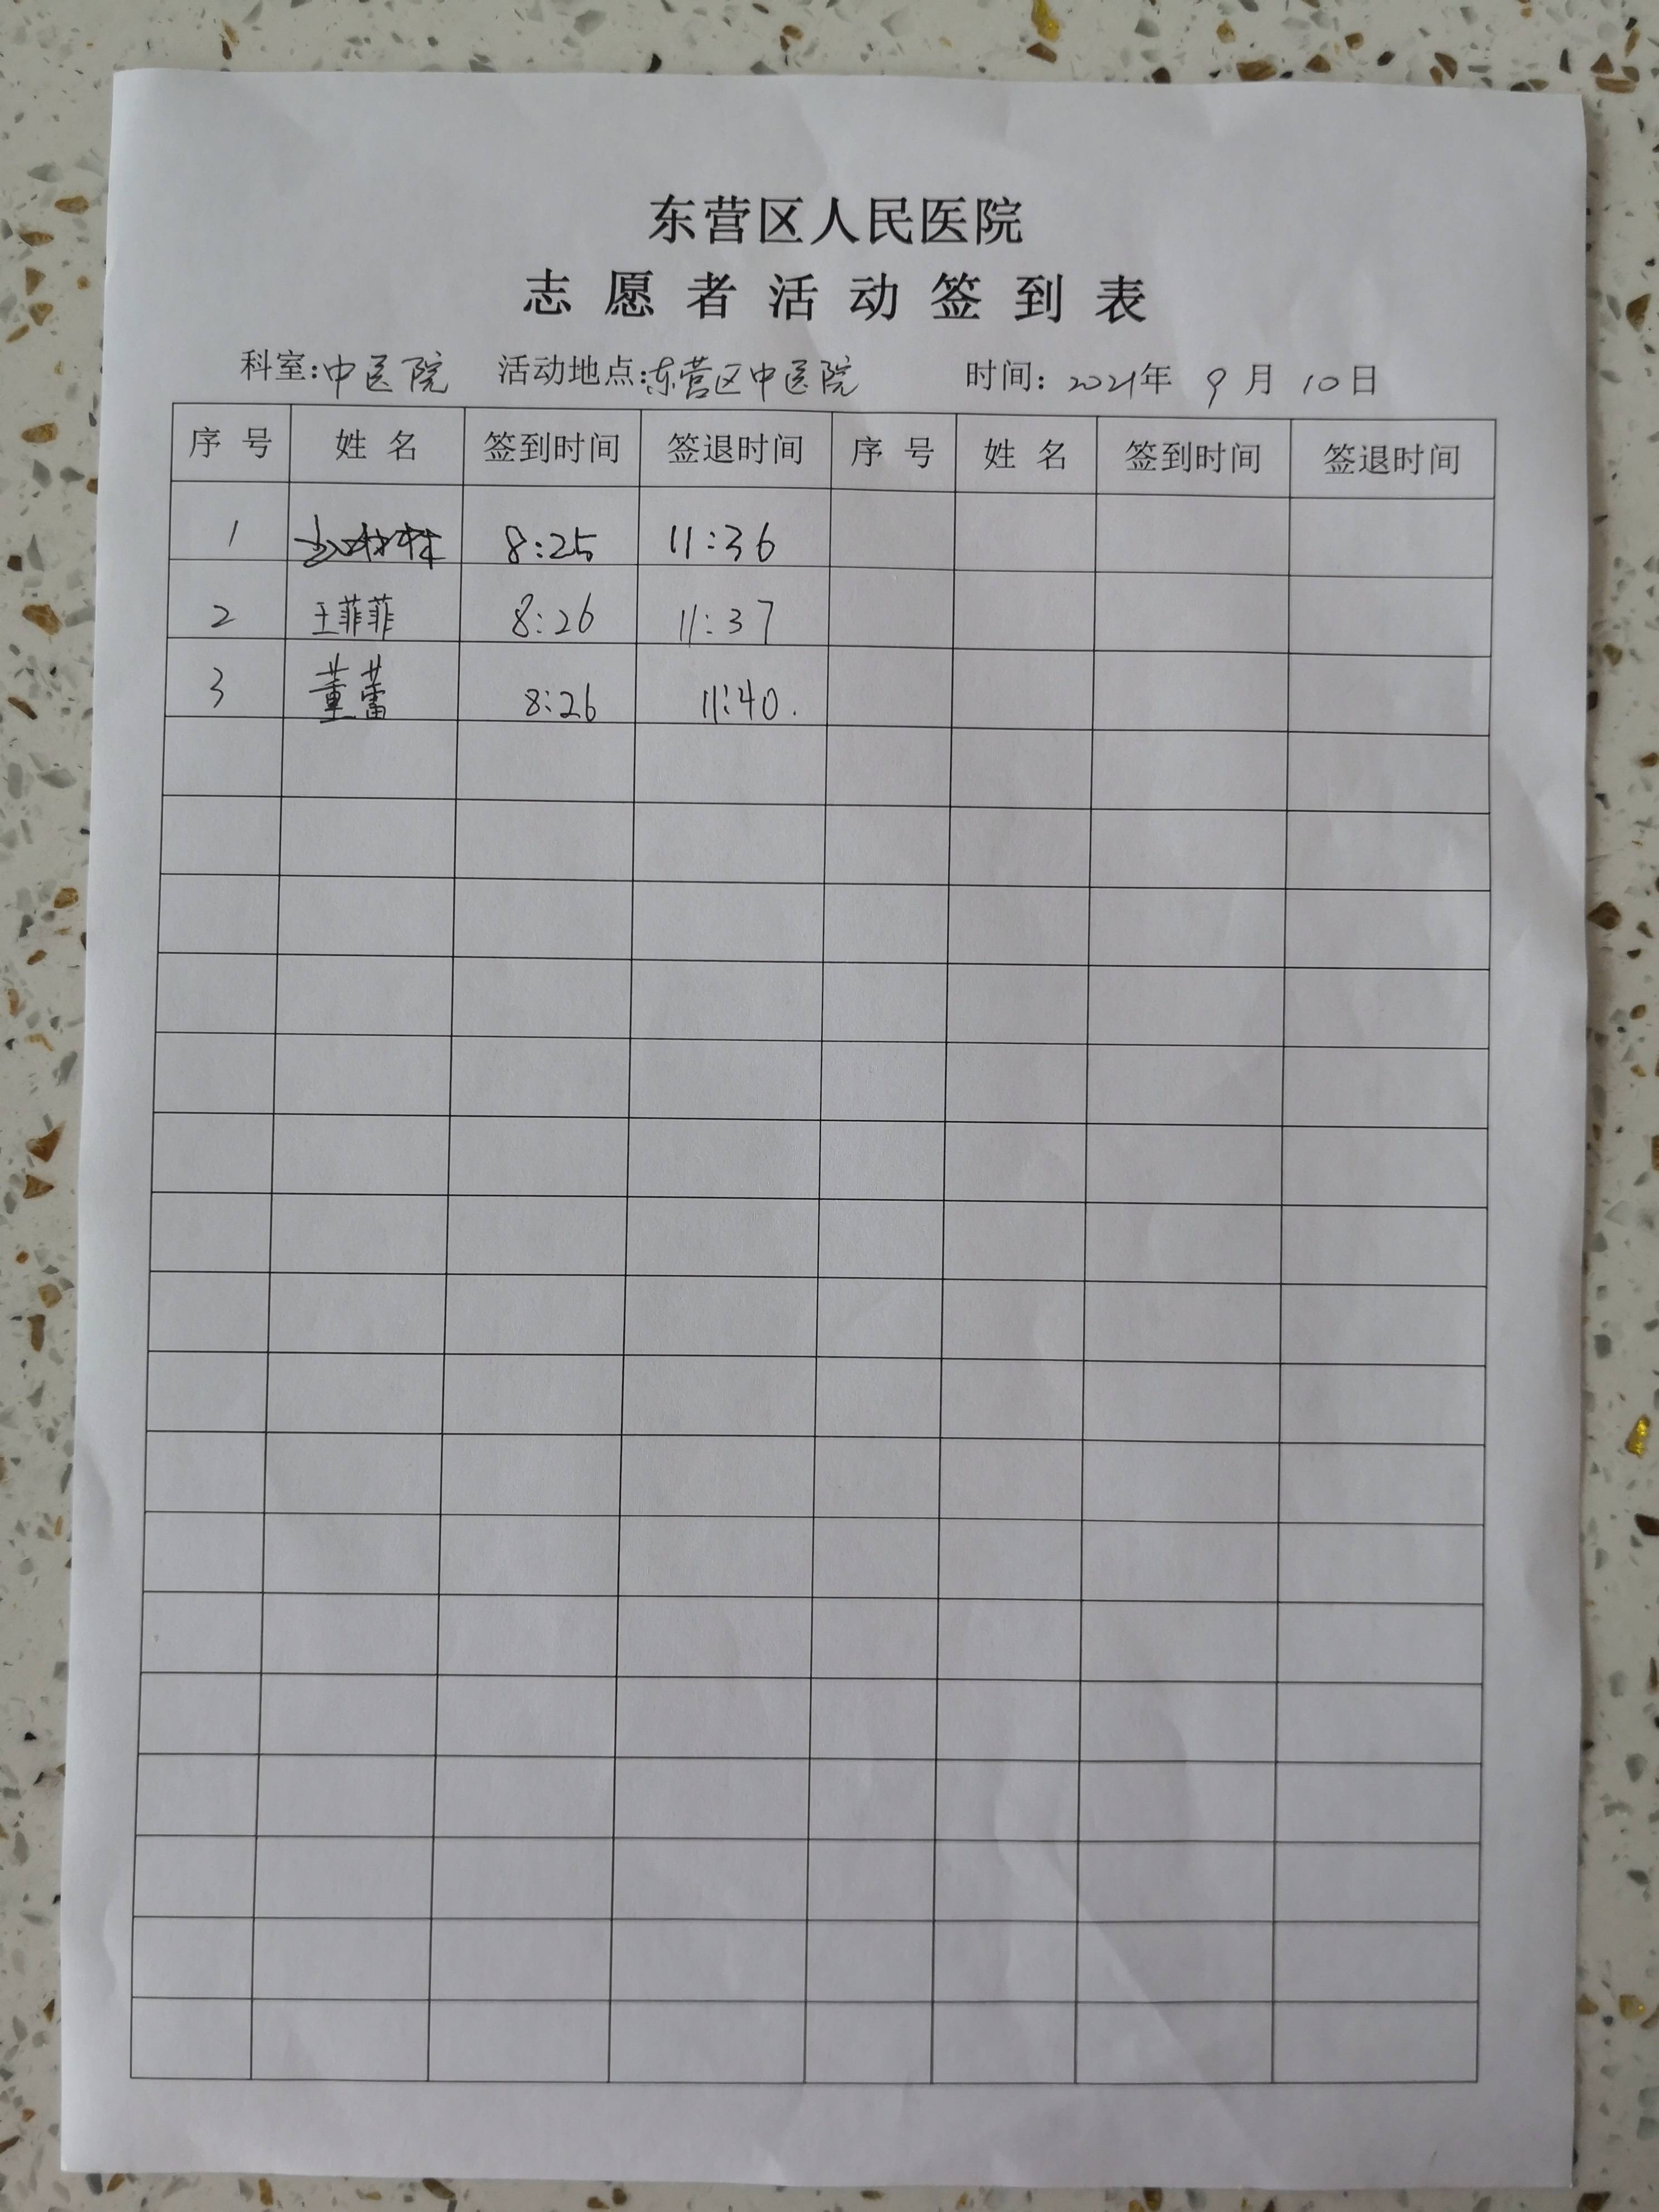 东营区人民医院
志愿者活动签到表
科室:中医院 活动地点:东营区中医院 时间: 2021年 9月 10日
序号 姓名 签到时间 签退时间 序号 姓名 签到时间 签退时间
1 8:25 11:36
2 王菲菲 8:26 11:37
3 董蕾 8:26 11:40.